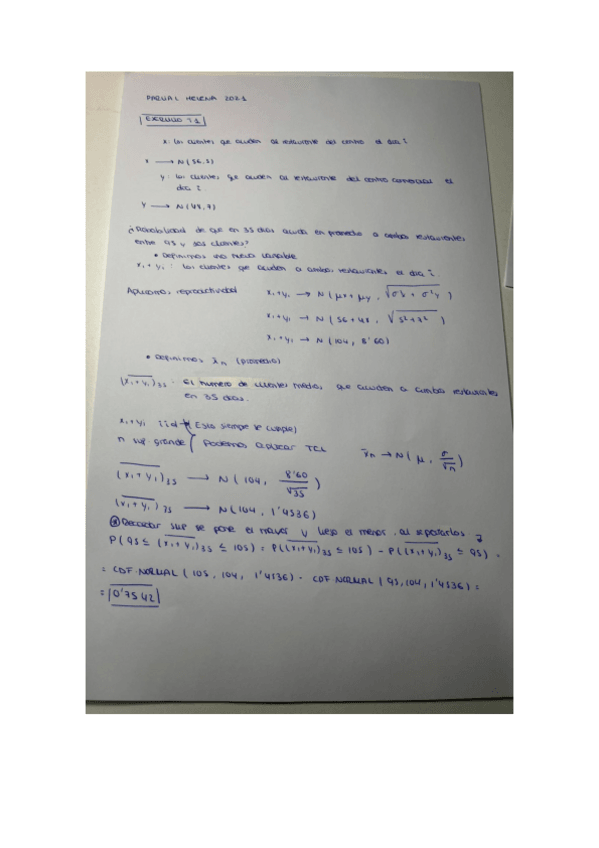 PARCIAL HELENA 2021
EXERCICIO T.1
x: los clientes que acuden al restaurante del centro el dia i
x → N(56,5)
y: los clientes que acuden al restaurante del centro comercial el
dia i.
y → N(48,7)
¿Probabilidad de que en 35 dias acuda en promedio a ambos restaurantes
entre 95 y 105 clientes?
• Definimos una nueva variable
xi + yi : los clientes que acuden a ambos restaurantes el dia i.
Aplicamos reproductividad xi+yi → N(μx + μy, √σ²x + σ²y)
xi+yi → N(56+48, √5²+7²)
xi+yi → N(104, 8'60)
• Definimos x̄n (promedio)
(xi+yi)35 = El número de clientes medios que acuden a ambos restaurantes
en 35 dias.
xi+yi iid (Esto siempre se cumple)
n suf. grande podemos aplicar TCL x̄n → N(μ, σ/√n)
(xi+yi)35 → N(104, 8'60/√35)
(xi+yi)35 → N(104, 1'4536)
Recordar se pone el mayor y luego el menor al separarlos
P(95 ≤ (xi+yi)35 ≤ 105) = P((xi+yi)35 ≤ 105) - P((xi+yi)35 ≤ 95) =
= CDF.NORMAL(105, 104, 1'4536) - CDF.NORMAL(95, 104, 1'4536) =
= 0'7542